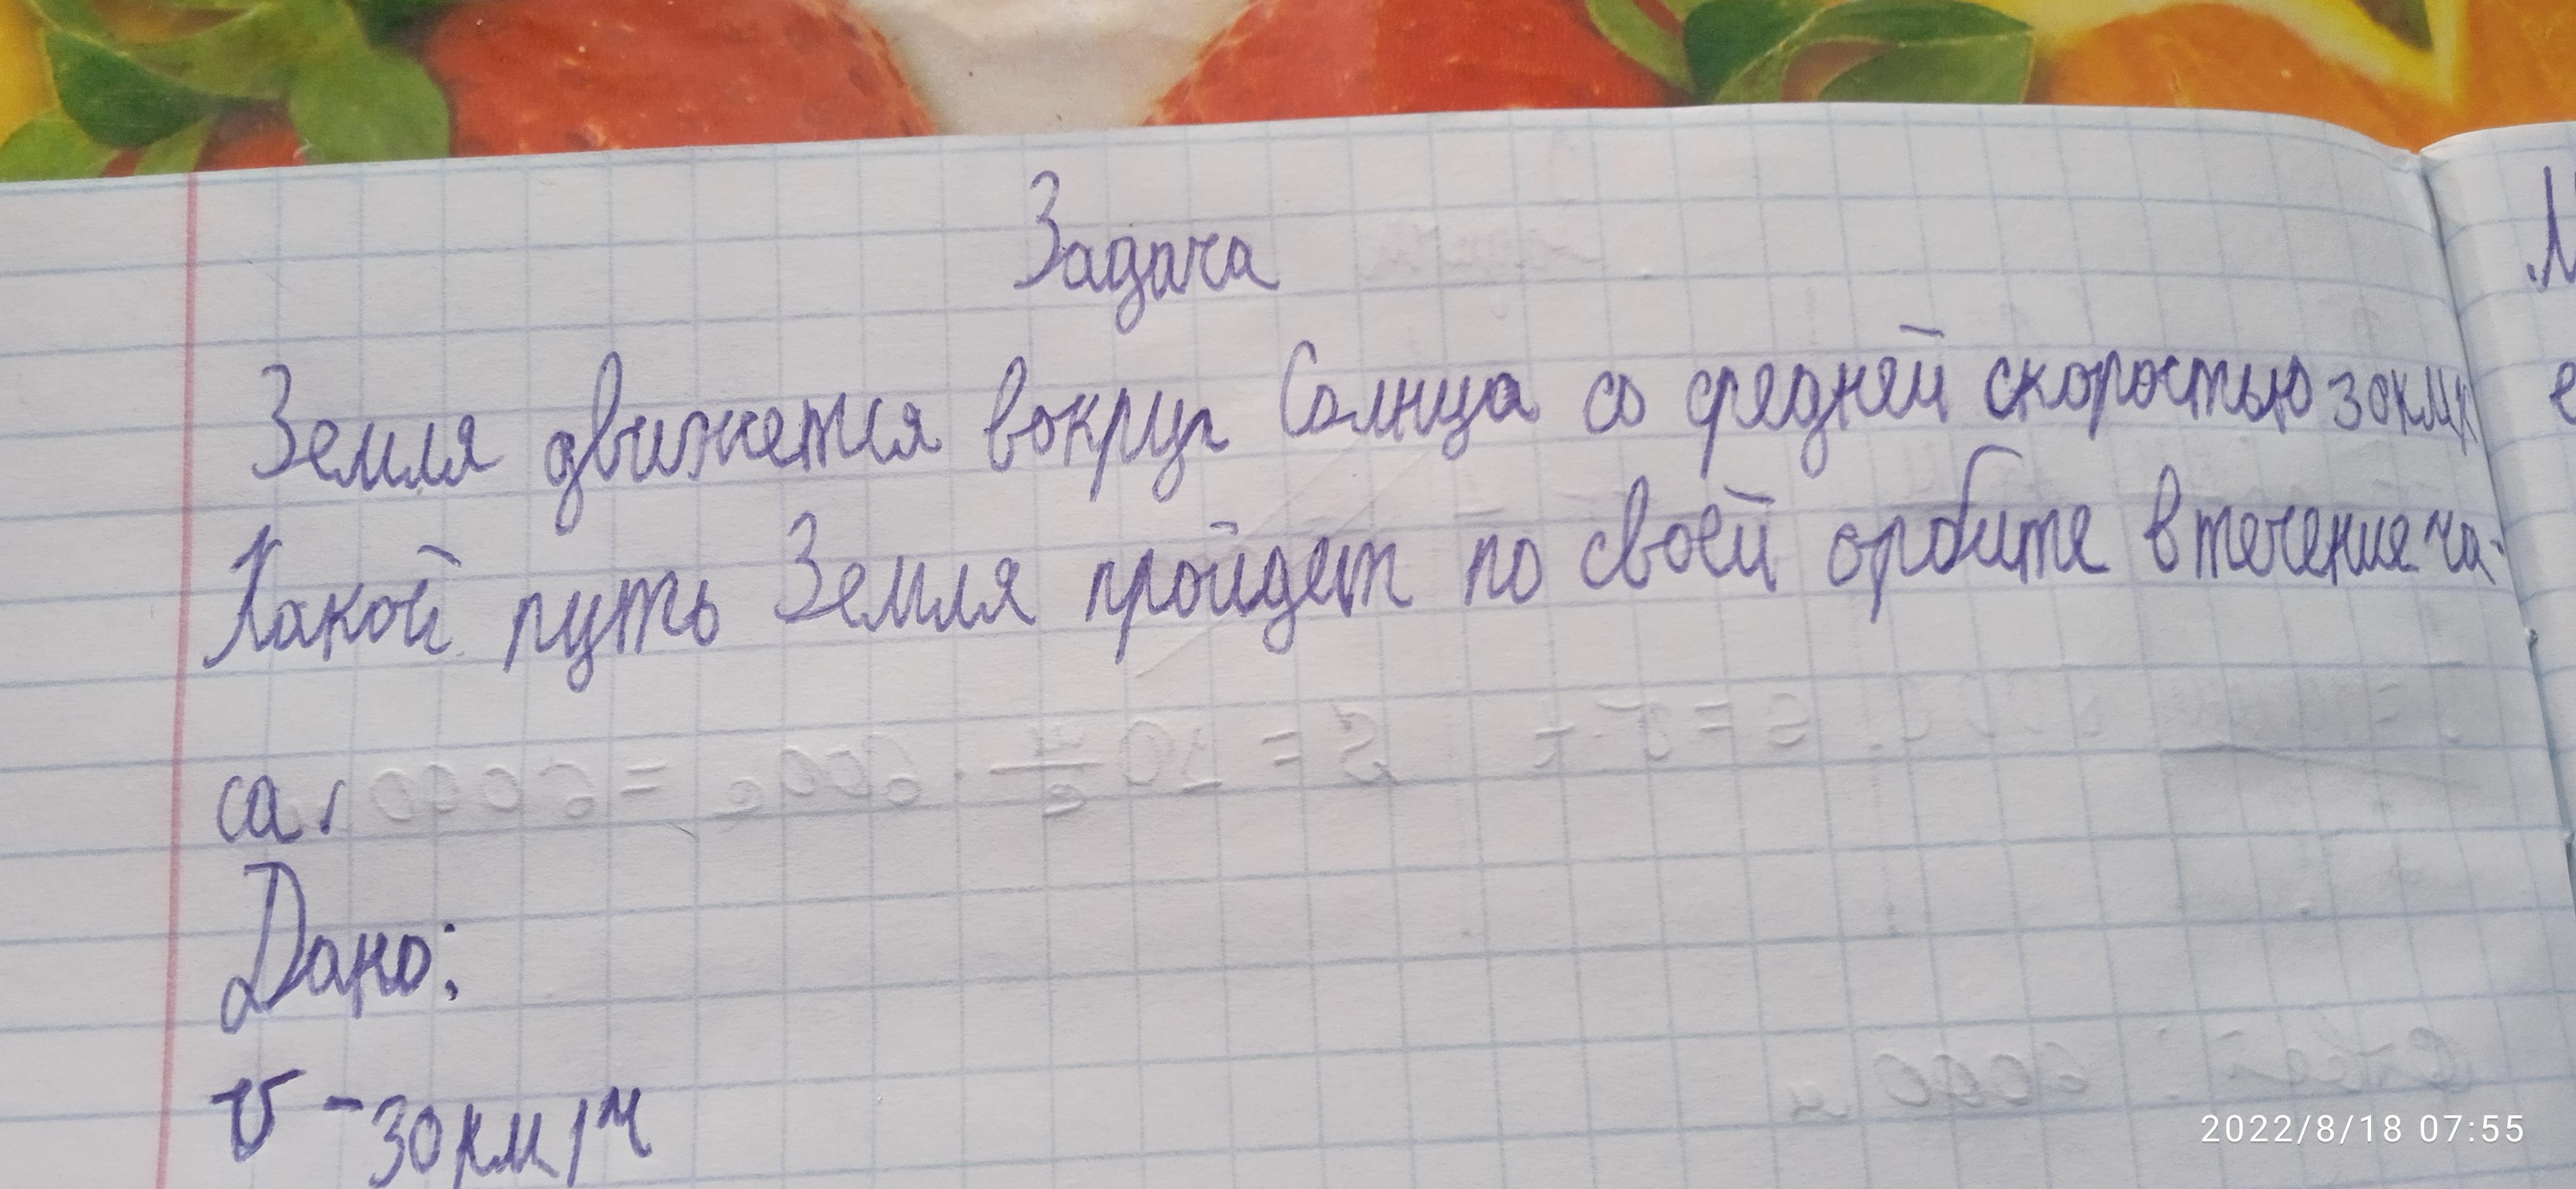 Задача
Земля движется вокруг Солнца со средней скоростью 30км/
Какой путь Земля пройдет по своей орбите в течение ча-
са.
Дано:
v - 30 км/ч
2022/8/18 07:55